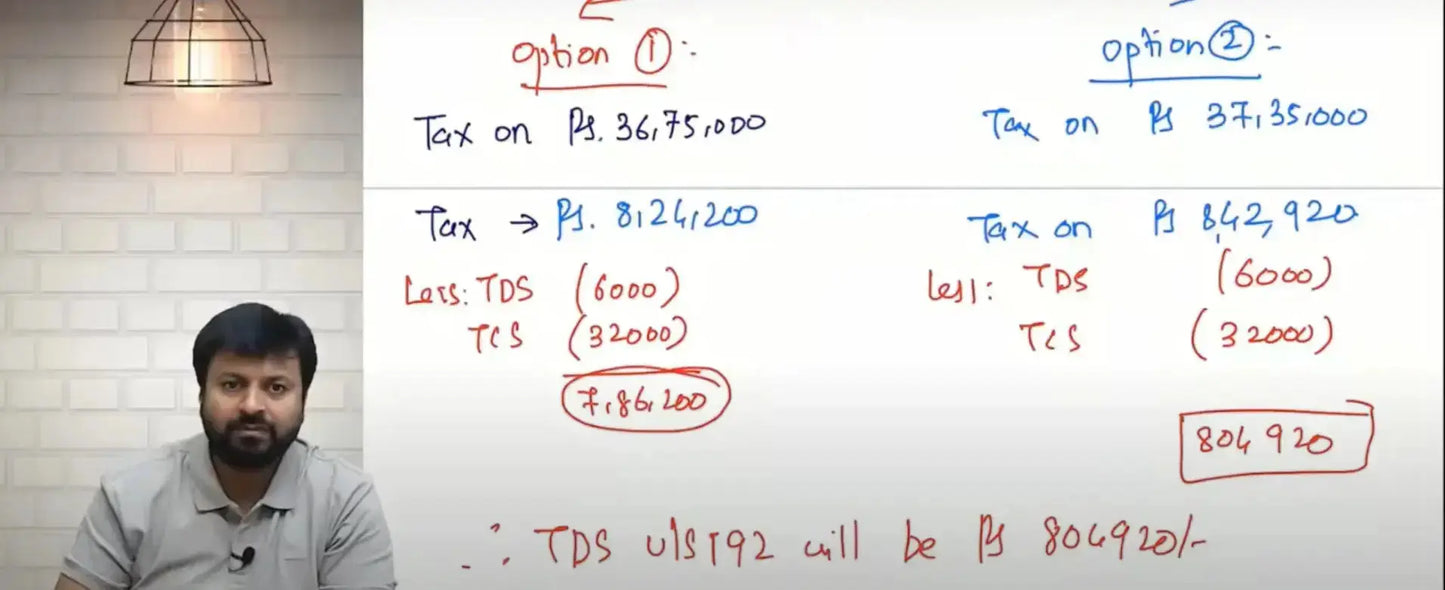 Option ① :-
Tax on Rs. 36,75,000
Tax → Rs. 8,24,200
Less: TDS (6000)
TCS (32000)
7,86,200
Option ② :-
Tax on Rs 37,35,000
Tax on Rs 8,42,920
Less: TDS (6000)
TCS (32000)
804920
∴ TDS u/s 192 will be Rs 804920/-